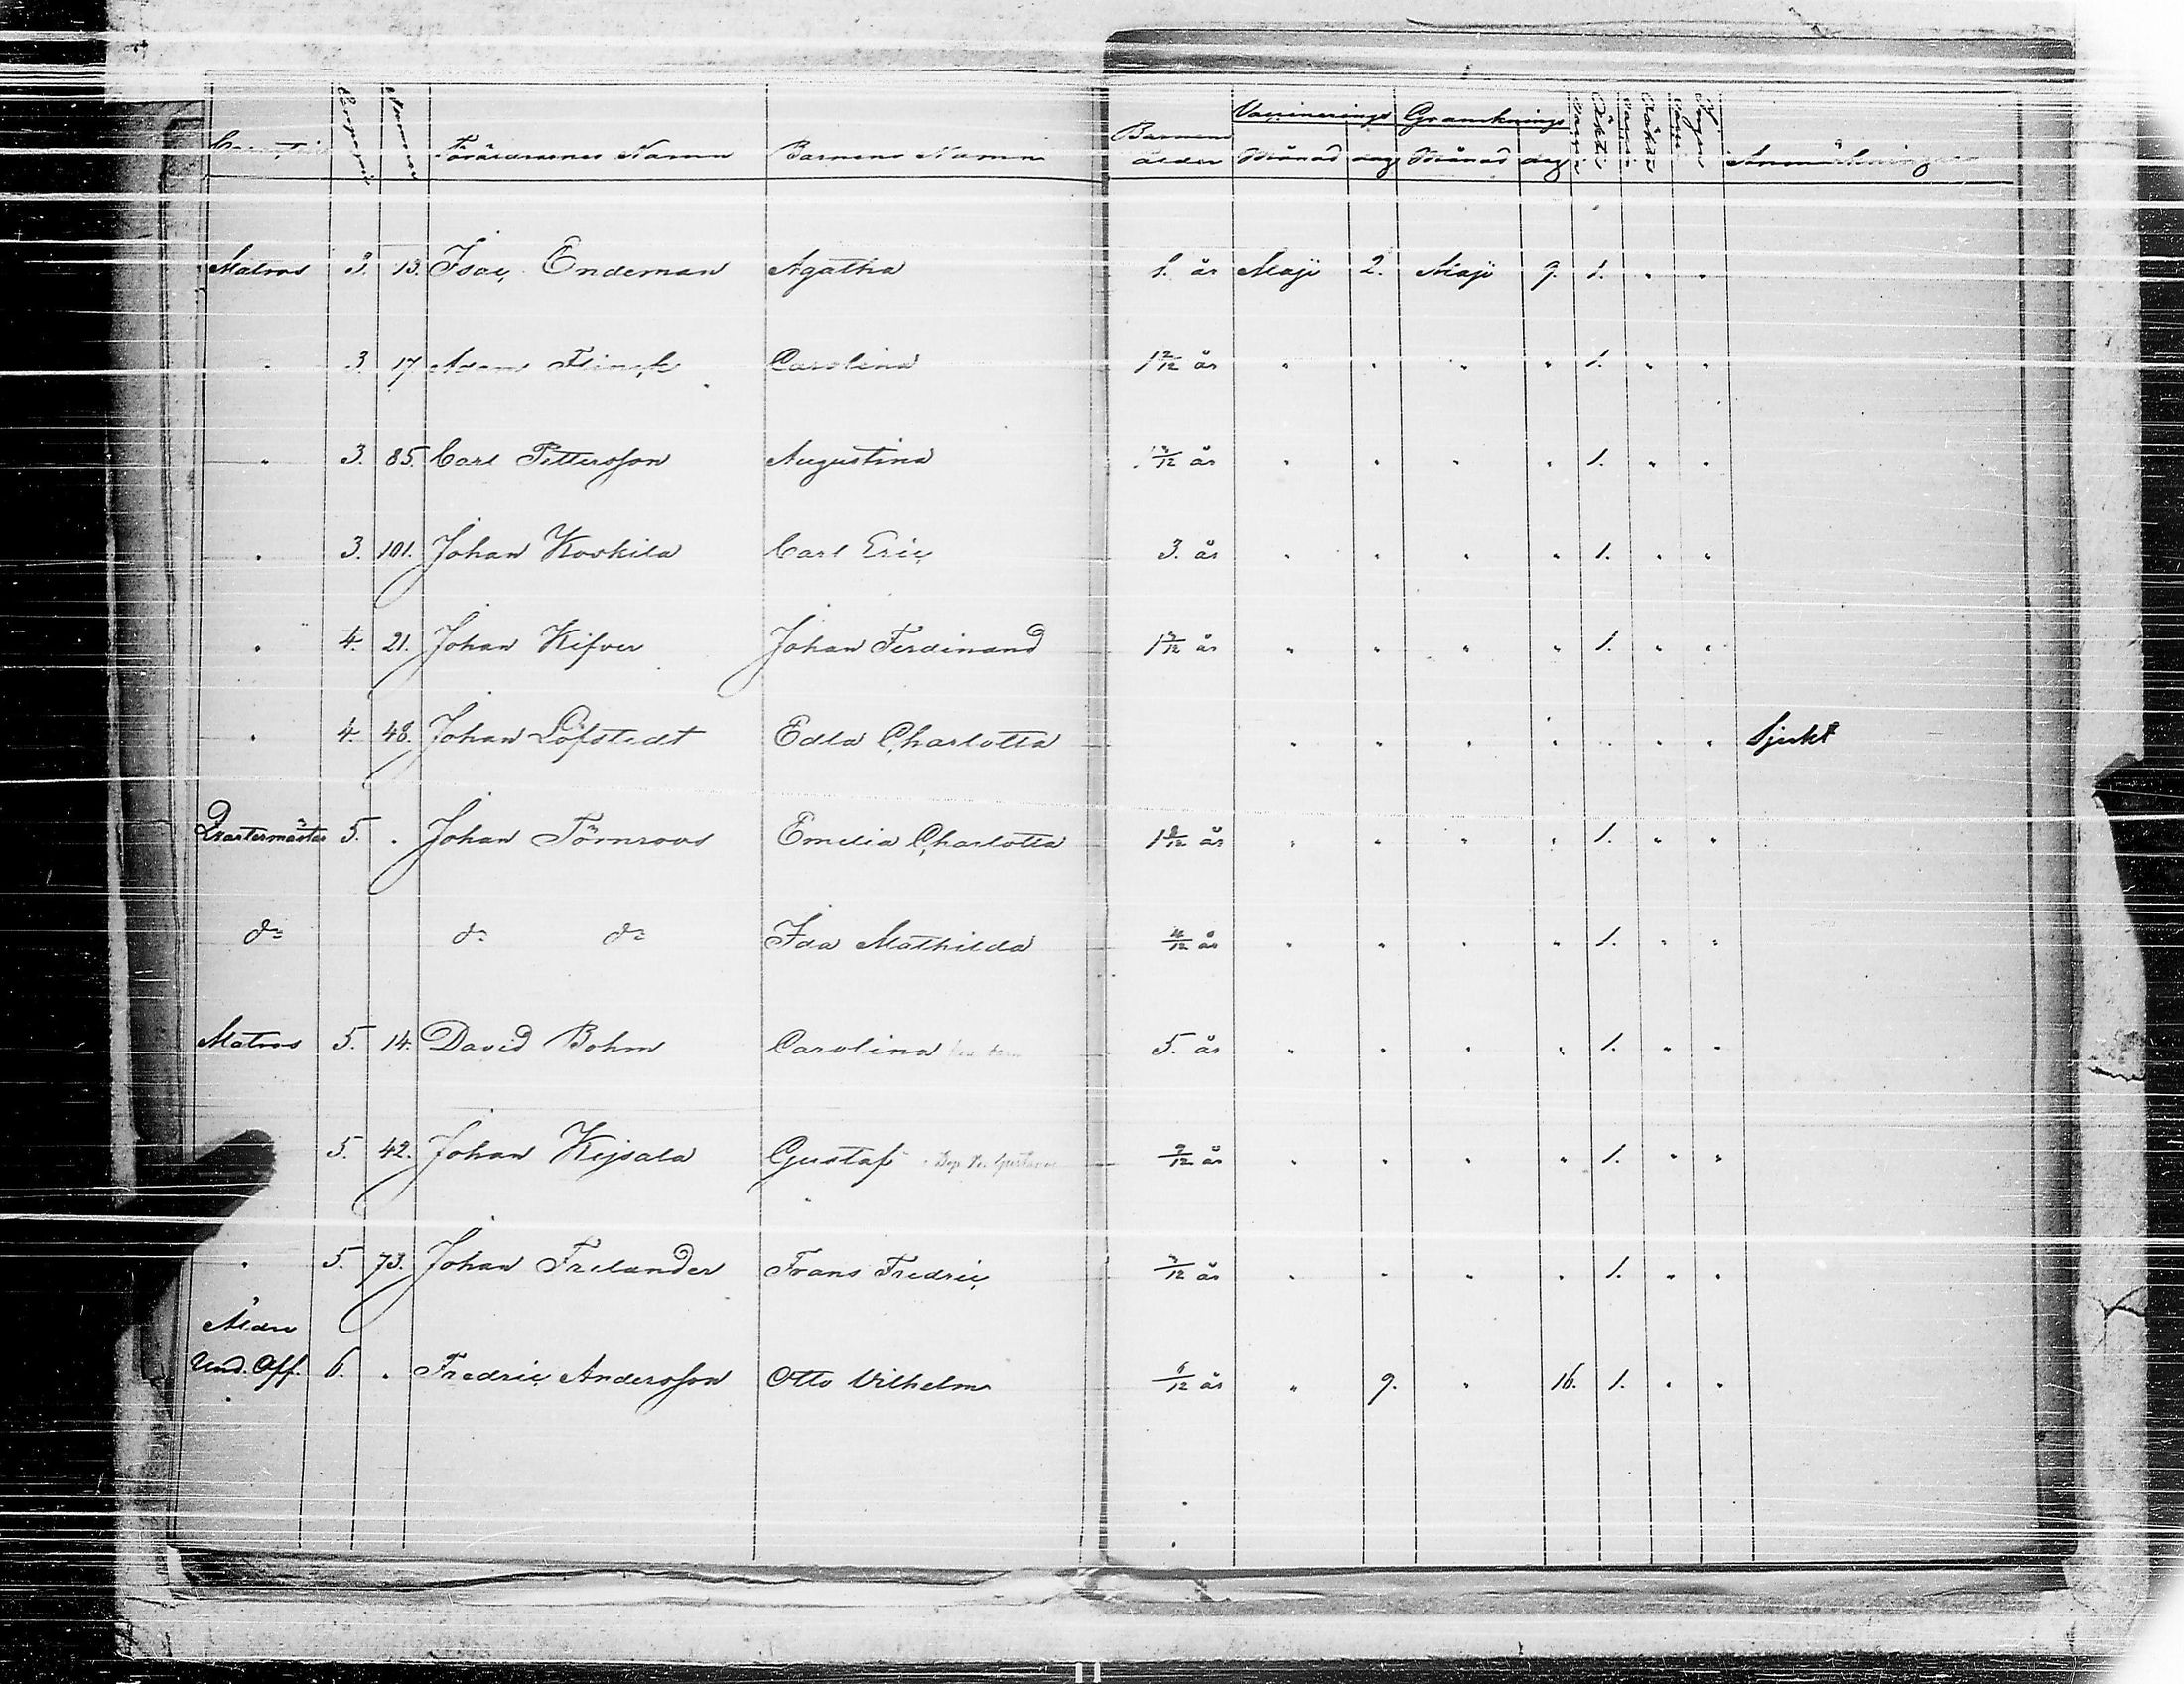 Föräldrarnes Namn Barnens Namn Barnens ålder Vaccinerings Månad dag Gransknings Månad dag Anmärkningar
Matros 3. 13. Isac Endeman Agatha 1. år Maji 2. Maji 9. 1. " "
" 3. 17 Adam Flinck Carolina 1 2/12 år " " " " 1. " "
" 3. 85. Carl Pettersson Augustina " " " " 1. " "
" 3. 101. Johan Koskila Carl Eric 3. år " " " " 1. " "
" 4. 21. Johan Kifver Johan Ferdinand " " " " 1. " "
" 4. 48. Johan Löfstedt Edla Charlotta " " " " " " " Sjukt
Qvartermästar 5. " Johan Törnroos Emelia Charlotta 1 8/12 år " " " " 1. " "
do do do Ida Mathilda " " " " 1. " "
Matros 5. 14. David Bohm Carolina 5. år " " " " 1. " "
5. 42. Johan Kejsala Gustaf 9/12 år " " " " 1. " "
" 5. 73. Johan Frelander Frans Fredric " " " " 1. " "
Äldre
Und. Off. 6. " Fredric Andersson Otto Vilhelm 6/12 år " 9. " 16. 1. " "